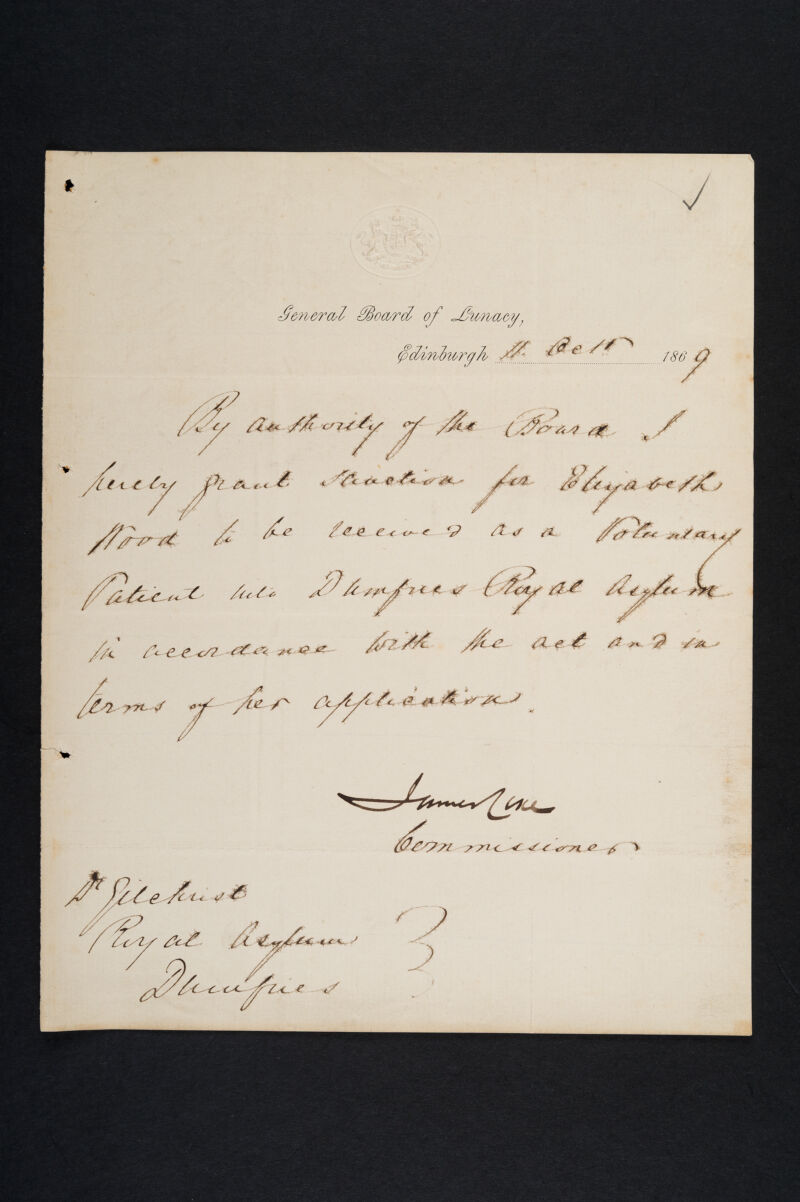 General Board of Lunacy,
Edinburgh 11 Oct 1869
By authority of the Board I
hereby grant sanction for Elizabeth
Wood to be received as a Voluntary
Patient into Dumfries Royal Asylum
in accordance with the act and in
terms of her application.
James Coxe
Commissioner
Dr Gilchrist
Royal Asylum
Dumfries